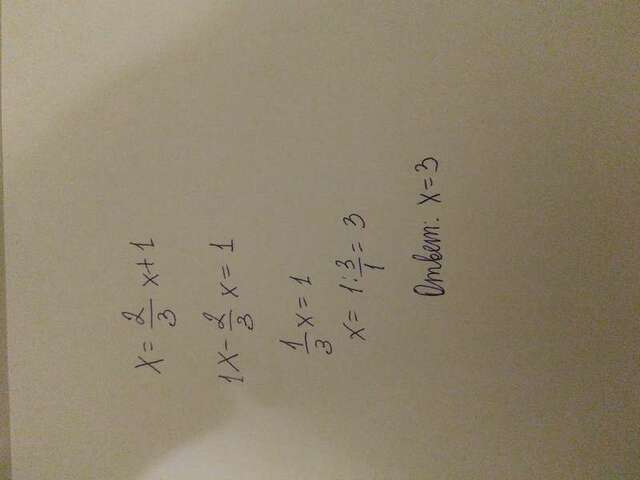 x = 2/3 x + 1
1x - 2/3 x = 1
1/3 x = 1
x = 1 : 3/1 = 3
Ответ: x = 3